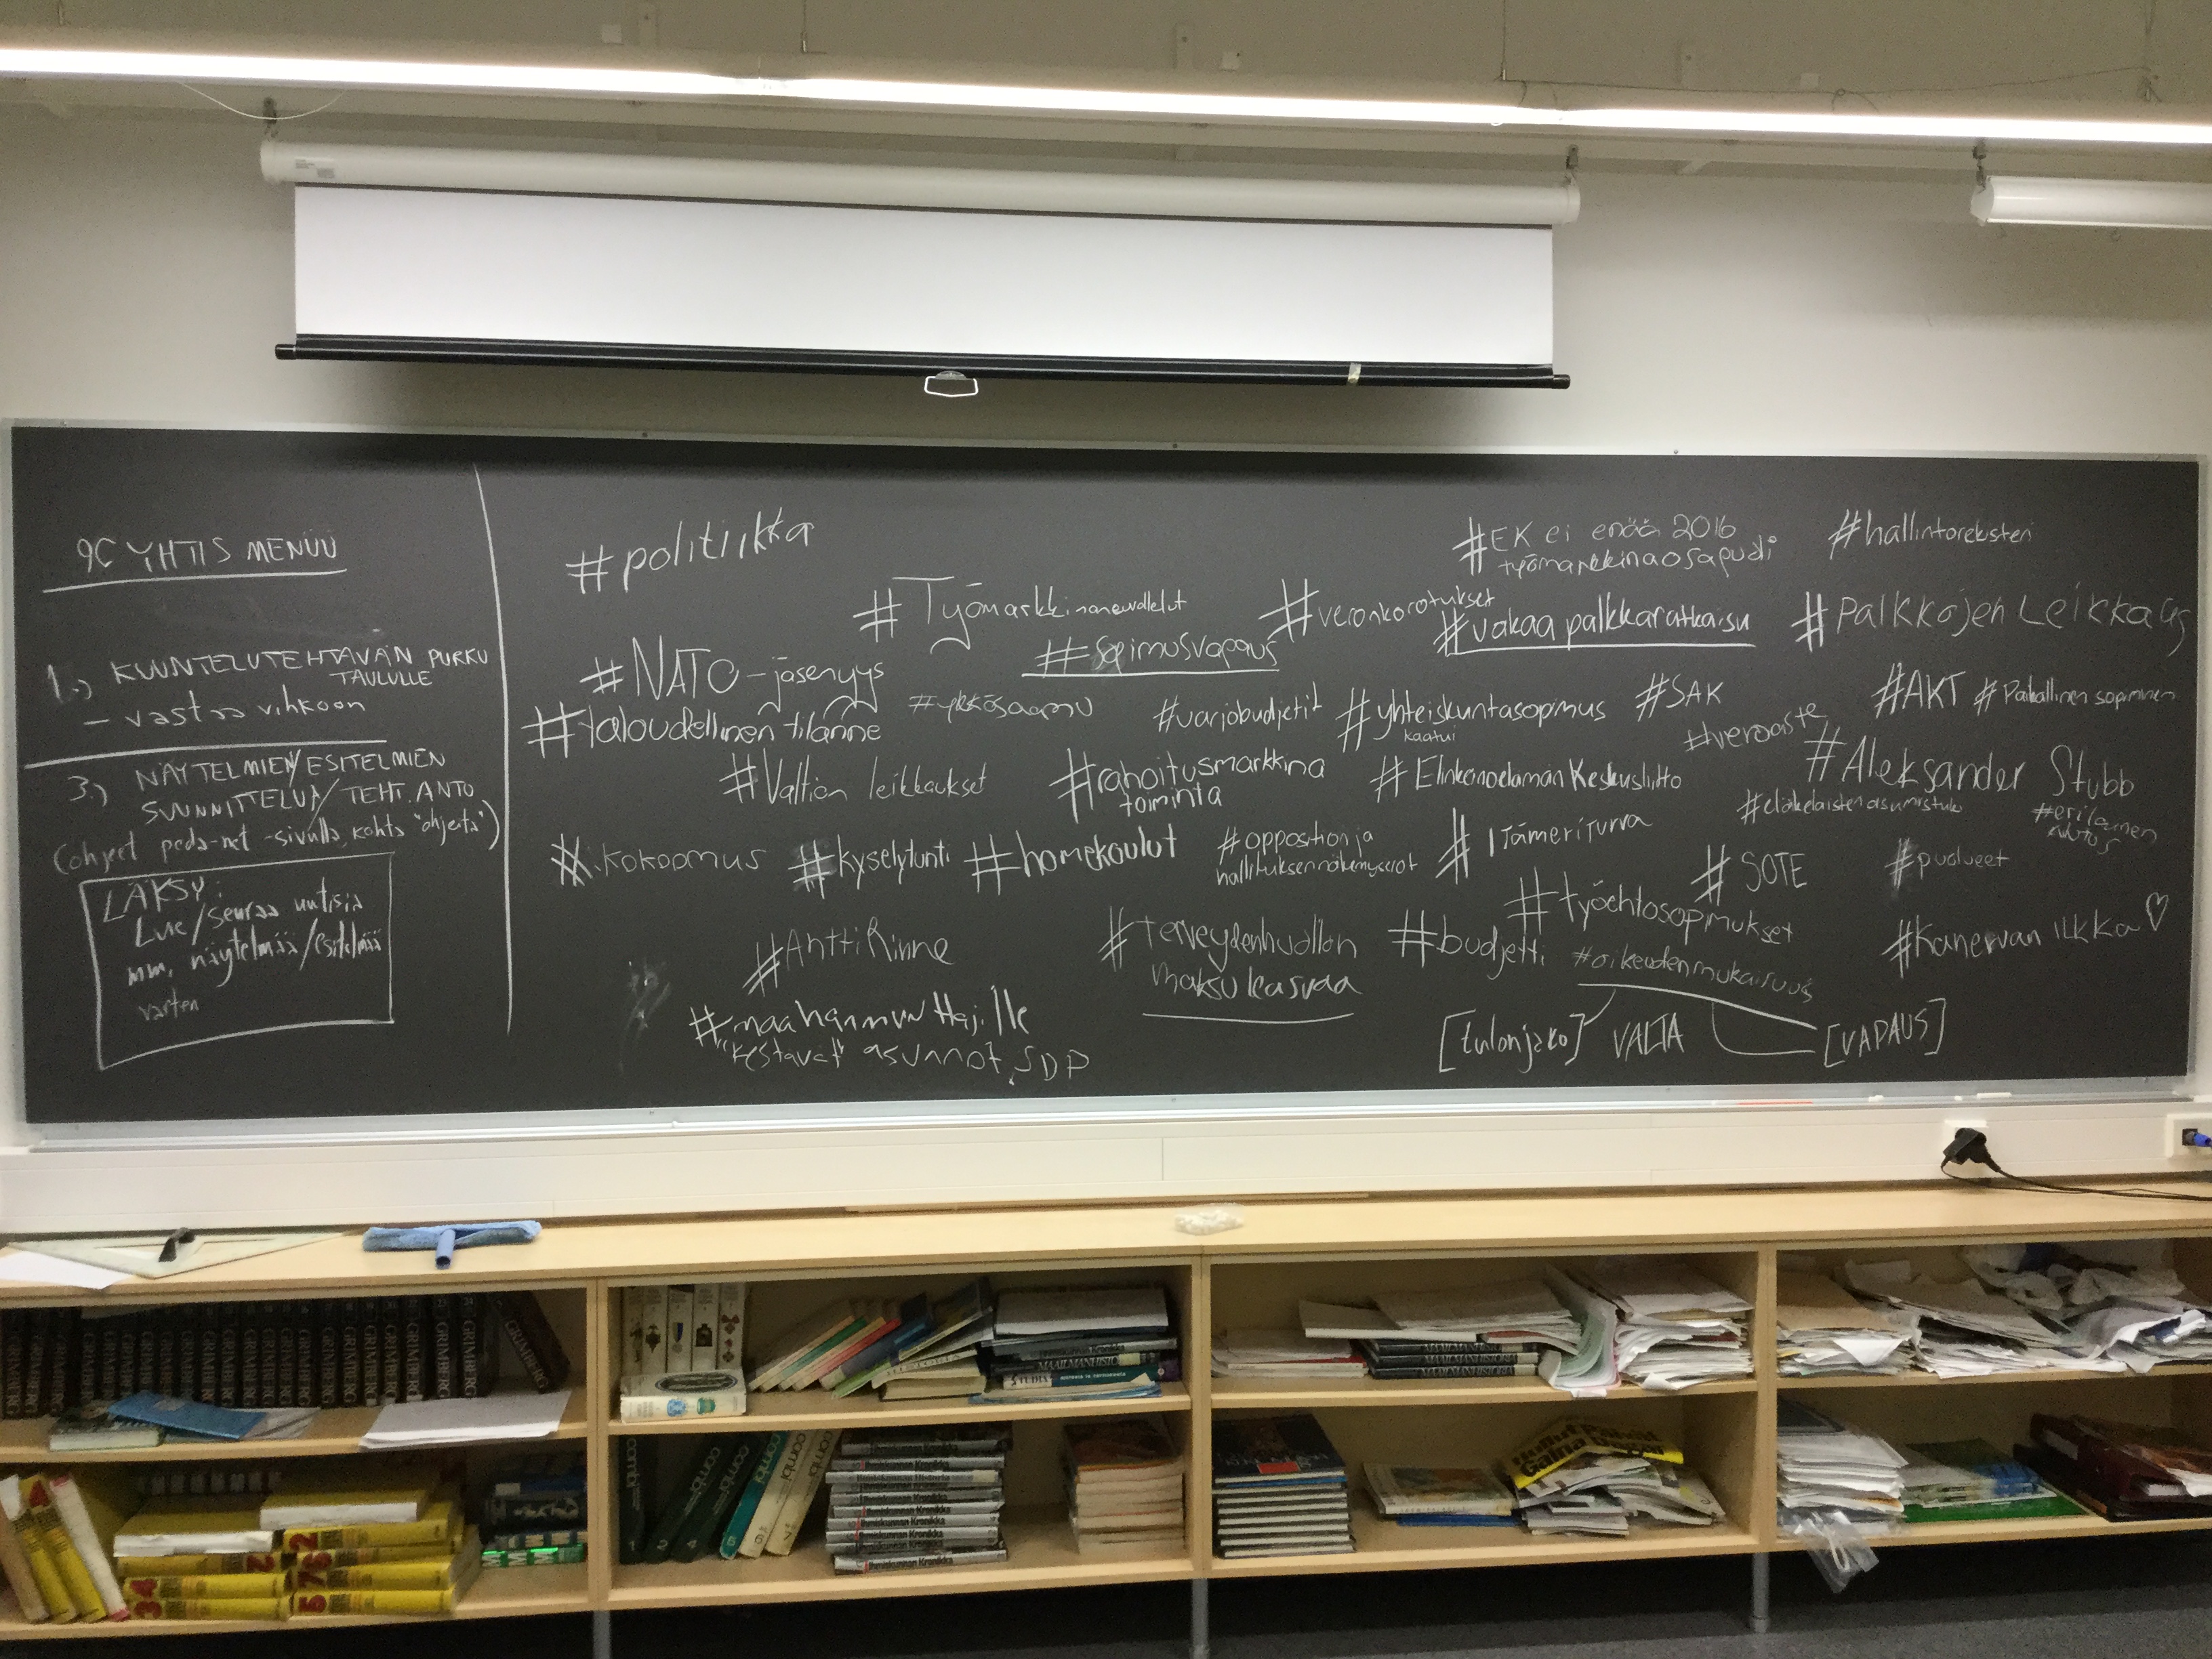 9C YHTIS MENUU
1.) KUUNTELUTEHTÄVÄN PURKU
TAULULLE
- vastaa vihkoon
3.) NÄYTELMIEN/ESITELMIEN
SUUNNITTELUA/TEHT.ANTO
(ohjeet peda-net -sivulla, kohta "ohjeita")
LÄKSY:
Lue/seuraa uutisia
mm. näytelmää/esitelmää
varten
#politiikka
#EK ei enää 2016
työmarkkinaosapuoli
#hallintorekisteri
#Työmarkkinaneuvottelut
#veronkorotukset
#vakaa palkkaratkaisu
#Palkkojen Leikkaus
#Sopimusvapaus
#NATO-jäsenyys
#ykkösaamu
#varjobudjetit
#yhteiskuntasopimus
kaatui
#SAK
#AKT
#Paikallinen sopiminen
#taloudellinen tilanne
#veroaste
#Valtion leikkaukset
#rahoitusmarkkina
toiminta
#Elinkeinoelämän Keskusliitto
#Aleksander Stubb
#eläkeläisten asumistuki
#erilainen
kulutus
#kokoomus
#kyselytunti
#homekoulut
#opposition ja
hallituksen näkemyserot
#Itämeriturva
#SOTE
#puolueet
#työehtosopimukset
#AnttiRinne
#terveydenhuollon
maksu kasvaa
#budjetti
#oikeudenmukaisuus
#Kanervan Ilkka ♡
#maahanmuuttajille
"kestävät" asunnot, SDP
[tulonjako] VALTA [VAPAUS]
GRIMBERG
MAAILMANHISTORIA
STUDIA
combi
Ihmiskunnan Kronikka
Ihmiskunnan Historia